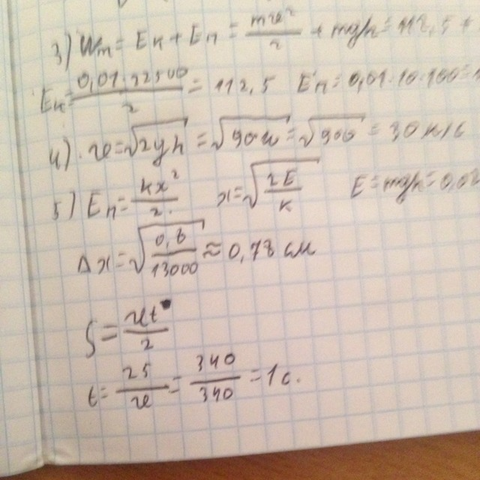 3) Wm = Eк + Eп = mv²/2 + mgh = 112,5 +
Eк = 0,01·22500/2 = 112,5 Eп = 0,01·10·100 =
4) v = √2gh = √90 = √900 = 30 м/с
5) Eп = kx²/2 x = √2E/k E = mgh = 0,0
Δx = √0,8/13000 ≈ 0,78 см
S = vt/2
t = 2S/v = 340/340 = 1 с.